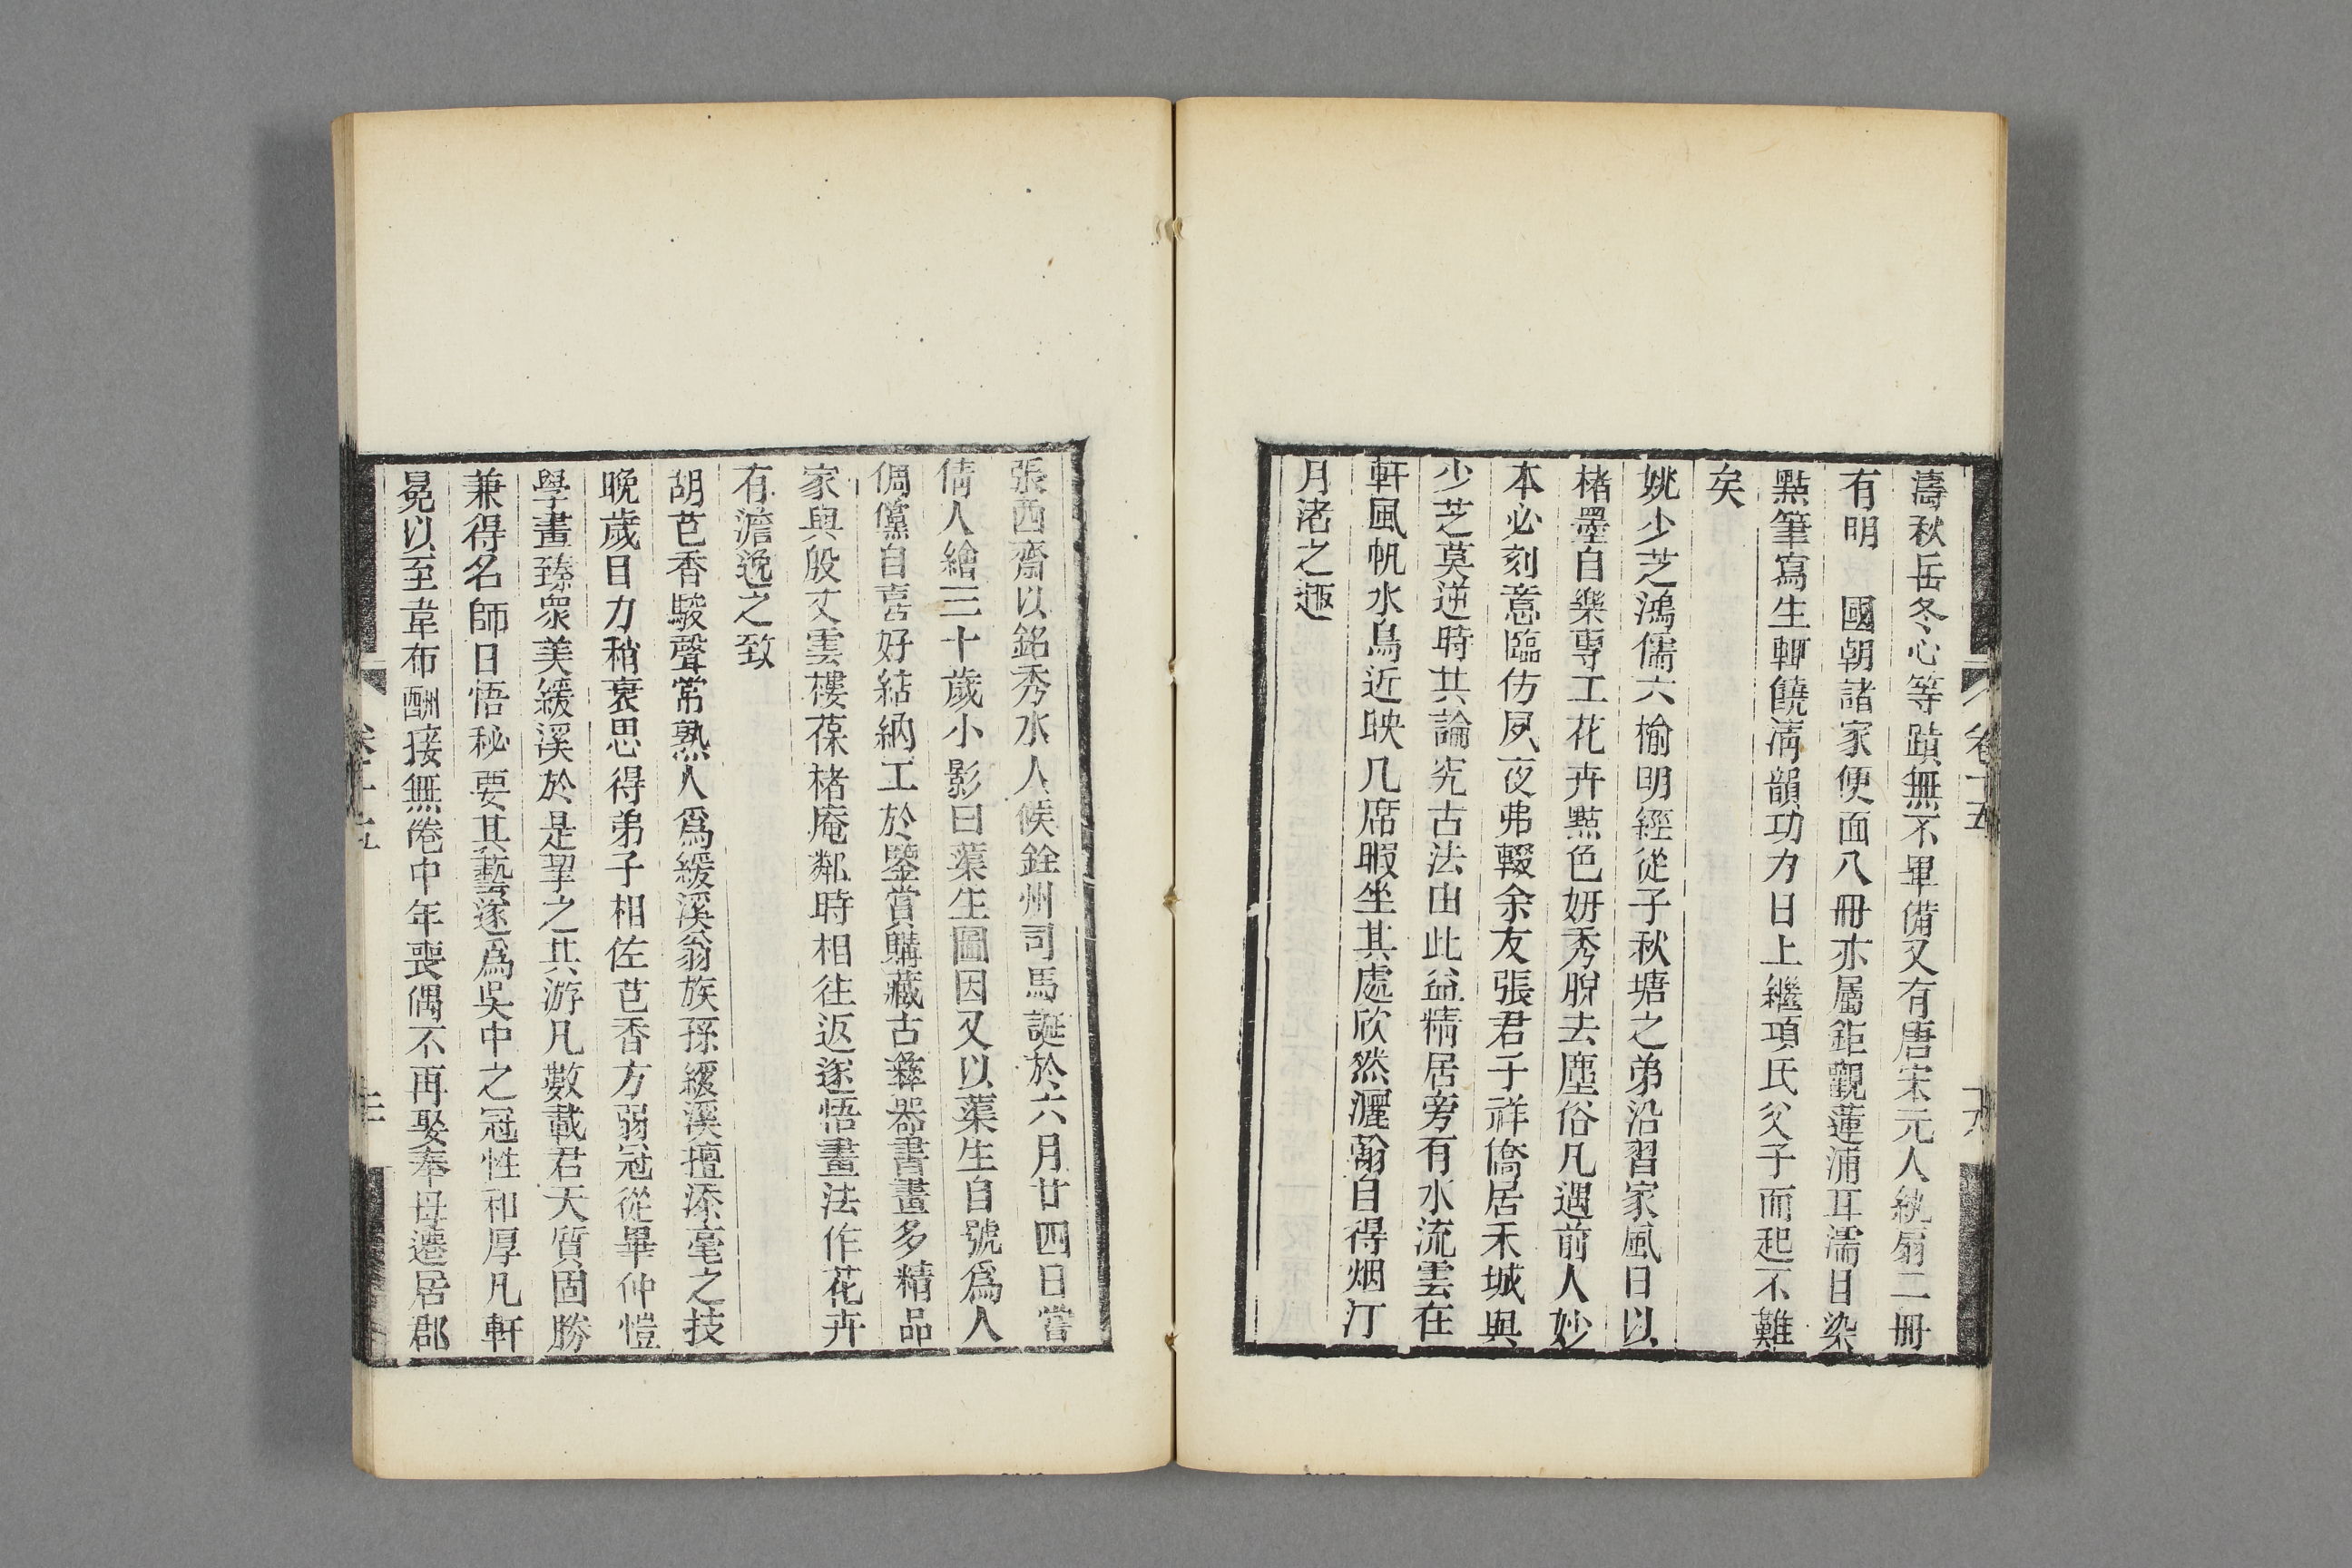 濤秋岳冬心等蹟無不畢備又有唐宋元人紈扇二冊
有明　國朝諸家便面八冊亦屬鉅觀蓮浦耳濡目染
點筆寫生輒饒清韻功力日上繼項氏父子而起不難
矣
姚少芝鴻儒六榆明經從子秋塘之弟沿習家風日以
楮墨自樂專工花卉點色妍秀脫去塵俗凡遇前人妙
本必刻意臨仿夙夜弗輟余友張君子祥僑居禾城與
少芝莫逆時共論究古法由此益精居旁有水流雲在
軒風帆水鳥近映几席暇坐其處欣然灑翰自得烟汀
月渚之趣
卷十五
張西齋以銘秀水人候銓州司馬誕於六月廿四日嘗
倩人繪三十歲小影曰蕖生圖因又以蕖生自號為人
倜儻自喜好結納工於鑒賞購藏古彝器書畫多精品
家與殷丈雲樓葆楮庵鄰時相往返遂悟畫法作花卉
有澹逸之致
胡芭香駿聲常熟人為緩溪翁族孫緩溪擅添毫之技
晚歲目力稍衰思得弟子相佐芭香方弱冠從畢仲愷
學畫臻衆美緩溪於是挈之共游凡數載君天質固勝
兼得名師日悟秘要其藝遂為吳中之冠性和厚凡軒
冕以至韋布酬接無倦中年喪偶不再娶奉母遷居郡